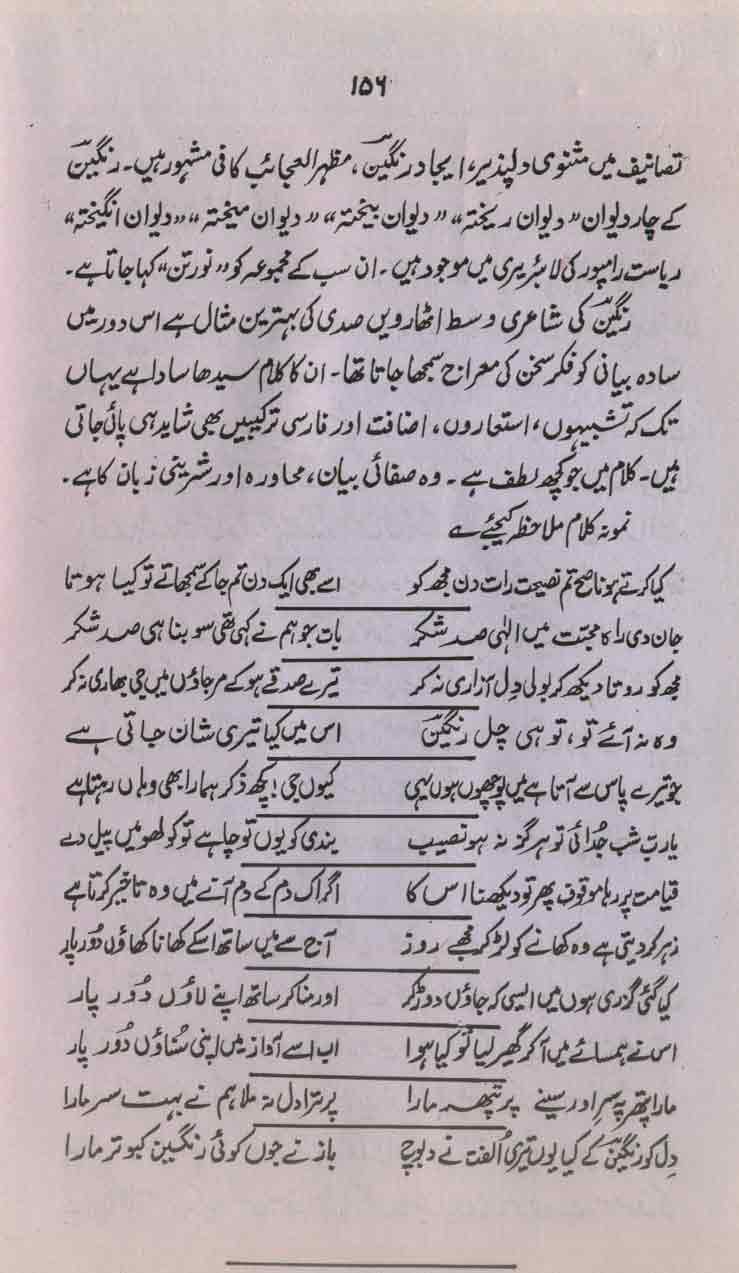 ۱۵۶
تصانیف میں مثنوی دلپذیر، ایجاد رنگینؔ، مظہر العجائب کافی مشہور ہیں۔ رنگینؔ
کے چار دیوان "دیوان ریختہ" "دیوان بیختہ" "دیوان میختہ" "دیوان انگیختہ"
ریاست رامپور کی لائبریری میں موجود ہیں۔ ان سب کے مجموعہ کو "نورتن" کہا جاتا ہے۔
رنگینؔ کی شاعری وسط اٹھارویں صدی کی بہترین مثال ہے اس دور میں
سادہ بیانی کو فکر سخن کی معراج سمجھا جاتا تھا۔ ان کا کلام سیدھا سادا ہے یہاں
تک کہ تشبیہوں، استعاروں، اضافت اور فارسی ترکیبیں بھی شاید ہی پائی جاتی
ہیں۔ کلام میں جو کچھ لطف ہے۔ وہ صفائی بیان، محاورہ اور شرینی زبان کا ہے۔
نمونہ کلام ملاحظہ کیجئے ؎
کیا کرتے ہو ناصح تم نصیحت رات دن مجھ کو اسے بھی ایک دن تم جا کے سمجھاتے تو کیسا ہوتا
جان دی راہ محبّت میں الہٰی صد شکر بات جو ہم نے کہی تھی سو بنا ہی صد شکر
مجھ کو روتا دیکھ کر بولی دِل آزاری نہ کر تیرے صدقے ہو کے مر جاؤں میں جی بھاری نہ کر
وہ نہ آئے تو، تو ہی چل رنگینؔ اس میں کیا تیری شان جاتی ہے
جو تیرے پاس سے آتا ہے میں پوچھوں ہوں یہی کیوں جی! کچھ ذکر ہمارا بھی وہاں رہتا ہے
یارب شب جُدائی تو ہرگز نہ ہو نصیب بندی کو یوں تو چاہے تو کولھو میں پیل دے
قیامت پر رہا موقوف پھر تو دیکھنا اس کا اگر اک دم کے دم آنے میں وہ تاخیر کرتا ہے
زہر کر دیتی ہے وہ کھانے کو لڑ کر مجھے روز آج سے میں ساتھ اسکے کھانا کھاؤں دُور پار
کیا گئی گزری ہوں میں ایسی کہ جاؤں دوڑ کر اور منا کر ساتھ اپنے لاؤں دُور پار
اس نے ہمسائے میں آ کر گھیر لیا تو کیا ہوا اب اسے آواز میں اپنی سُناؤں دُور پار
مارا پتھر پہ سر اور سینے پر پتھر مارا پر ترا دل نہ ملا ہم نے بہت سر مارا
دِل کو رنگینؔ کے کیا یوں تیری اُلفت نے دبوچ باز نے جوں کوئی رنگین کبوتر مارا